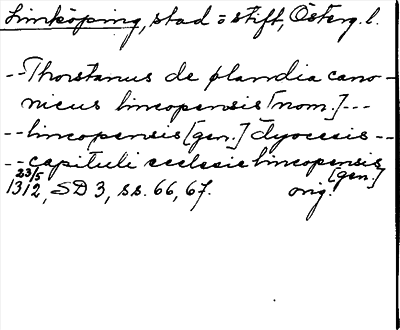 Linköping, stad o stift, Österg. l.
--Thorstanus de plandia cano-
nicus lincopensis [nom.]---
--lincopensis [gen.] dyocesis--
--capituli ecclesie lincopensis
[gen.]
23/5
1312, SD 3, ss. 66, 67. orig.